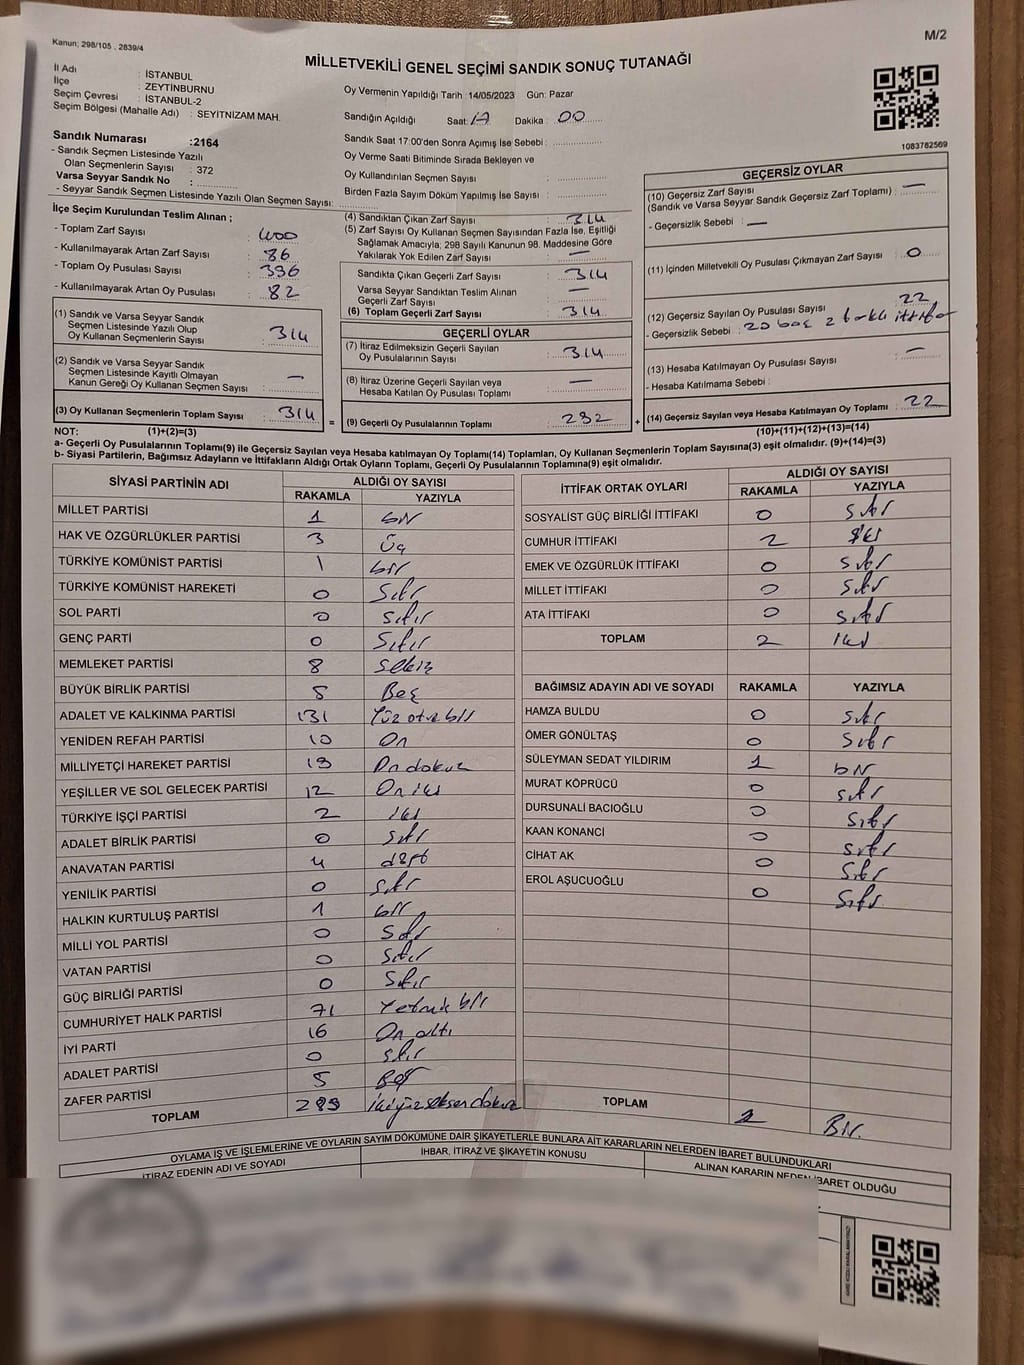 Kanun; 298/105 , 2839/4
M/2
MİLLETVEKİLİ GENEL SEÇİMİ SANDIK SONUÇ TUTANAĞI
İl Adı : İSTANBUL
İlçe : ZEYTİNBURNU
Seçim Çevresi : İSTANBUL-2
Seçim Bölgesi (Mahalle Adı) : SEYİTNİZAM MAH.
Sandık Numarası :2164
- Sandık Seçmen Listesinde Yazılı
Olan Seçmenlerin Sayısı : 372
Varsa Seyyar Sandık No :
- Seyyar Sandık Seçmen Listesinde Yazılı Olan Seçmen Sayısı:
Oy Vermenin Yapıldığı Tarih :14/05/2023 Gün: Pazar
Sandığın Açıldığı Saat: 17 Dakika : 00
Sandık Saat 17:00'den Sonra Açımış İse Sebebi :
Oy Verme Saati Bitiminde Sırada Bekleyen ve
Oy Kullandırılan Seçmen Sayısı :
Birden Fazla Sayım Döküm Yapılmış İse Sayısı :
1083782569
İlçe Seçim Kurulundan Teslim Alınan ;
- Toplam Zarf Sayısı : 400
- Kullanılmayarak Artan Zarf Sayısı : 86
- Toplam Oy Pusulası Sayısı : 396
- Kullanılmayarak Artan Oy Pusulası : 82
(1) Sandık ve Varsa Seyyar Sandık
Seçmen Listesinde Yazılı Olup
Oy Kullanan Seçmenlerin Sayısı : 314
(2) Sandık ve Varsa Seyyar Sandık
Seçmen Listesinde Kayıtlı Olmayan
Kanun Gereği Oy Kullanan Seçmen Sayısı : —
(3) Oy Kullanan Seçmenlerin Toplam Sayısı : 314 =
(4) Sandıktan Çıkan Zarf Sayısı : 314
(5) Zarf Sayısı Oy Kullanan Seçmen Sayısından Fazla İse, Eşitliği
Sağlamak Amacıyla; 298 Sayılı Kanunun 98. Maddesine Göre
Yakılarak Yok Edilen Zarf Sayısı : —
Sandıkta Çıkan Geçerli Zarf Sayısı : 314
Varsa Seyyar Sandıktan Teslim Alınan
Geçerli Zarf Sayısı : —
(6) Toplam Geçerli Zarf Sayısı : 314
GEÇERLİ OYLAR
(7) İtiraz Edilmeksizin Geçerli Sayılan
Oy Pusulalarının Sayısı : 314
(8) İtiraz Üzerine Geçerli Sayılan veya
Hesaba Katılan Oy Pusulası Toplamı : —
(9) Geçerli Oy Pusulalarının Toplamı : 292 +
GEÇERSİZ OYLAR
(10) Geçersiz Zarf Sayısı
(Sandık ve Varsa Seyyar Sandık Geçersiz Zarf Toplamı) : —
- Geçersizlik Sebebi : —
(11) İçinden Milletvekili Oy Pusulası Çıkmayan Zarf Sayısı : 0
(12) Geçersiz Sayılan Oy Pusulası Sayısı : 22
- Geçersizlik Sebebi : 20 boş 2 farklı ittifak
(13) Hesaba Katılmayan Oy Pusulası Sayısı : —
- Hesaba Katılmama Sebebi :
(14) Geçersiz Sayılan veya Hesaba Katılmayan Oy Toplamı : 22
NOT: (1)+(2)=(3) (10)+(11)+(12)+(13)=(14)
a- Geçerli Oy Pusulalarının Toplamı(9) ile Geçersiz Sayılan veya Hesaba katılmayan Oy Toplamı(14) Toplamları, Oy Kullanan Seçmenlerin Toplam Sayısına(3) eşit olmalıdır. (9)+(14)=(3)
b- Siyasi Partilerin, Bağımsız Adayların ve İttifakların Aldığı Ortak Oyların Toplamı, Geçerli Oy Pusulalarının Toplamına(9) eşit olmalıdır.
SİYASİ PARTİNİN ADI ALDIĞI OY SAYISI
RAKAMLA YAZIYLA
MİLLET PARTİSİ 1 bir
HAK VE ÖZGÜRLÜKLER PARTİSİ 3 Üç
TÜRKİYE KOMÜNİST PARTİSİ 1 bir
TÜRKİYE KOMÜNİST HAREKETİ 0 Sıfır
SOL PARTİ 0 sıfır
GENÇ PARTİ 0 Sıfır
MEMLEKET PARTİSİ 8 sekiz
BÜYÜK BİRLİK PARTİSİ 5 Beş
ADALET VE KALKINMA PARTİSİ 131 Yüz otuz bir
YENİDEN REFAH PARTİSİ 10 On
MİLLİYETÇİ HAREKET PARTİSİ 19 On dokuz
YEŞİLLER VE SOL GELECEK PARTİSİ 12 On iki
TÜRKİYE İŞÇİ PARTİSİ 2 iki
ADALET BİRLİK PARTİSİ 0 sıfır
ANAVATAN PARTİSİ 4 dört
YENİLİK PARTİSİ 0 sıfır
HALKIN KURTULUŞ PARTİSİ 1 bir
MİLLİ YOL PARTİSİ 0 Sıfır
VATAN PARTİSİ 0 Sıfır
GÜÇ BİRLİĞİ PARTİSİ 0 Sıfır
CUMHURİYET HALK PARTİSİ 71 Yetmiş bir
İYİ PARTİ 16 On altı
ADALET PARTİSİ 0 sıfır
ZAFER PARTİSİ 5 Beş
TOPLAM 289 ikiyüz seksen dokuz
İTTİFAK ORTAK OYLARI ALDIĞI OY SAYISI
RAKAMLA YAZIYLA
SOSYALİST GÜÇ BİRLİĞİ İTTİFAKI 0 sıfır
CUMHUR İTTİFAKI 2 iki
EMEK VE ÖZGÜRLÜK İTTİFAKI 0 sıfır
MİLLET İTTİFAKI 0 sıfır
ATA İTTİFAKI 0 sıfır
TOPLAM 2 iki
BAĞIMSIZ ADAYIN ADI VE SOYADI RAKAMLA YAZIYLA
HAMZA BULDU 0 sıfır
ÖMER GÖNÜLTAŞ 0 Sıfır
SÜLEYMAN SEDAT YILDIRIM 1 bir
MURAT KÖPRÜCÜ 0 sıfır
DURSUNALİ BACIOĞLU 0 Sıfır
KAAN KONANCİ 0 sıfır
CİHAT AK 0 Sıfır
EROL AŞUCUOĞLU 0 Sıfır
TOPLAM 1 Bir.
OYLAMA İŞ VE İŞLEMLERİNE VE OYLARIN SAYIM DÖKÜMÜNE DAİR ŞİKAYETLERLE BUNLARA AİT KARARLARIN NELERDEN İBARET BULUNDUKLARI
İTİRAZ EDENİN ADI VE SOYADI İHBAR, İTİRAZ VE ŞİKAYETİN KONUSU ALINAN KARARIN NEDEN İBARET OLDUĞU